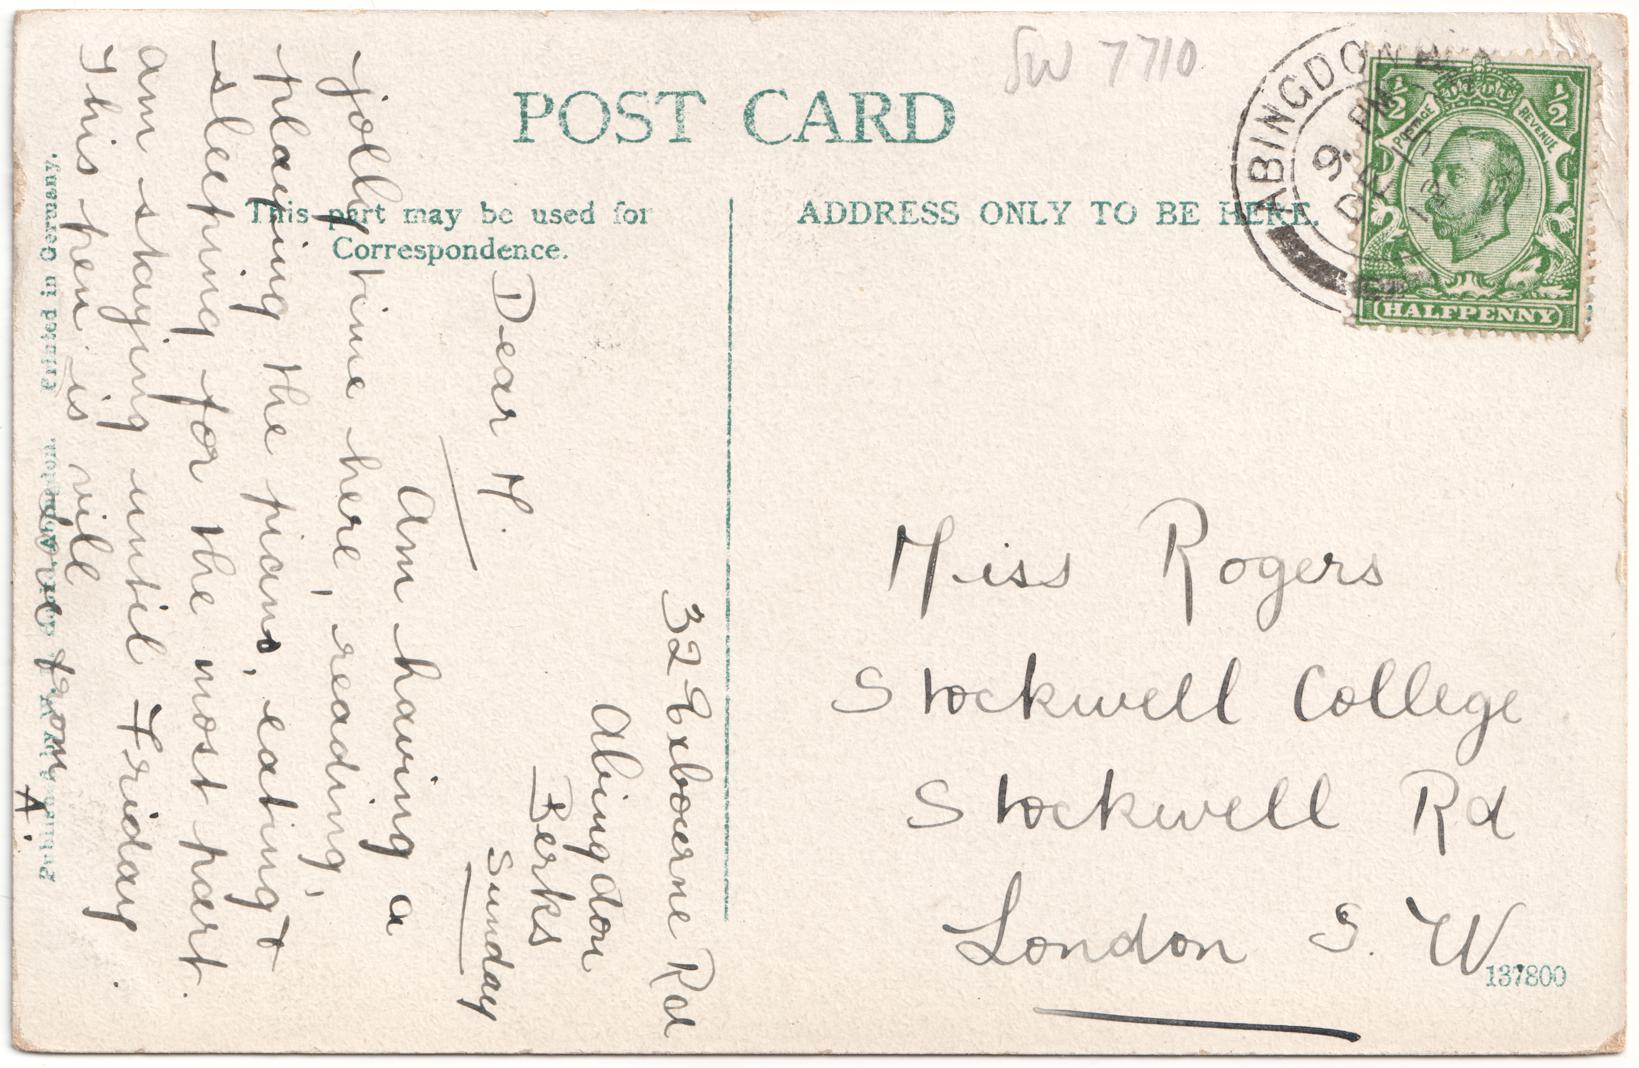 SW 7710
POST CARD
This part may be used for
Correspondence.
ADDRESS ONLY TO BE HERE.
ABINGDON
9. PM
DE
13
½ ½
POSTAGE REVENUE
HALFPENNY
32 Exbourne Rd
Abingdon
Berks
Sunday
Dear M.
Am having a
jolly time here, reading,
playing the piano, eating &
sleeping for the most part.
Am staying until Friday.
This pen is vile
Love from
A.
Miss Rogers
Stockwell College
Stockwell Rd
London S. W.
137800
Printed in Germany.